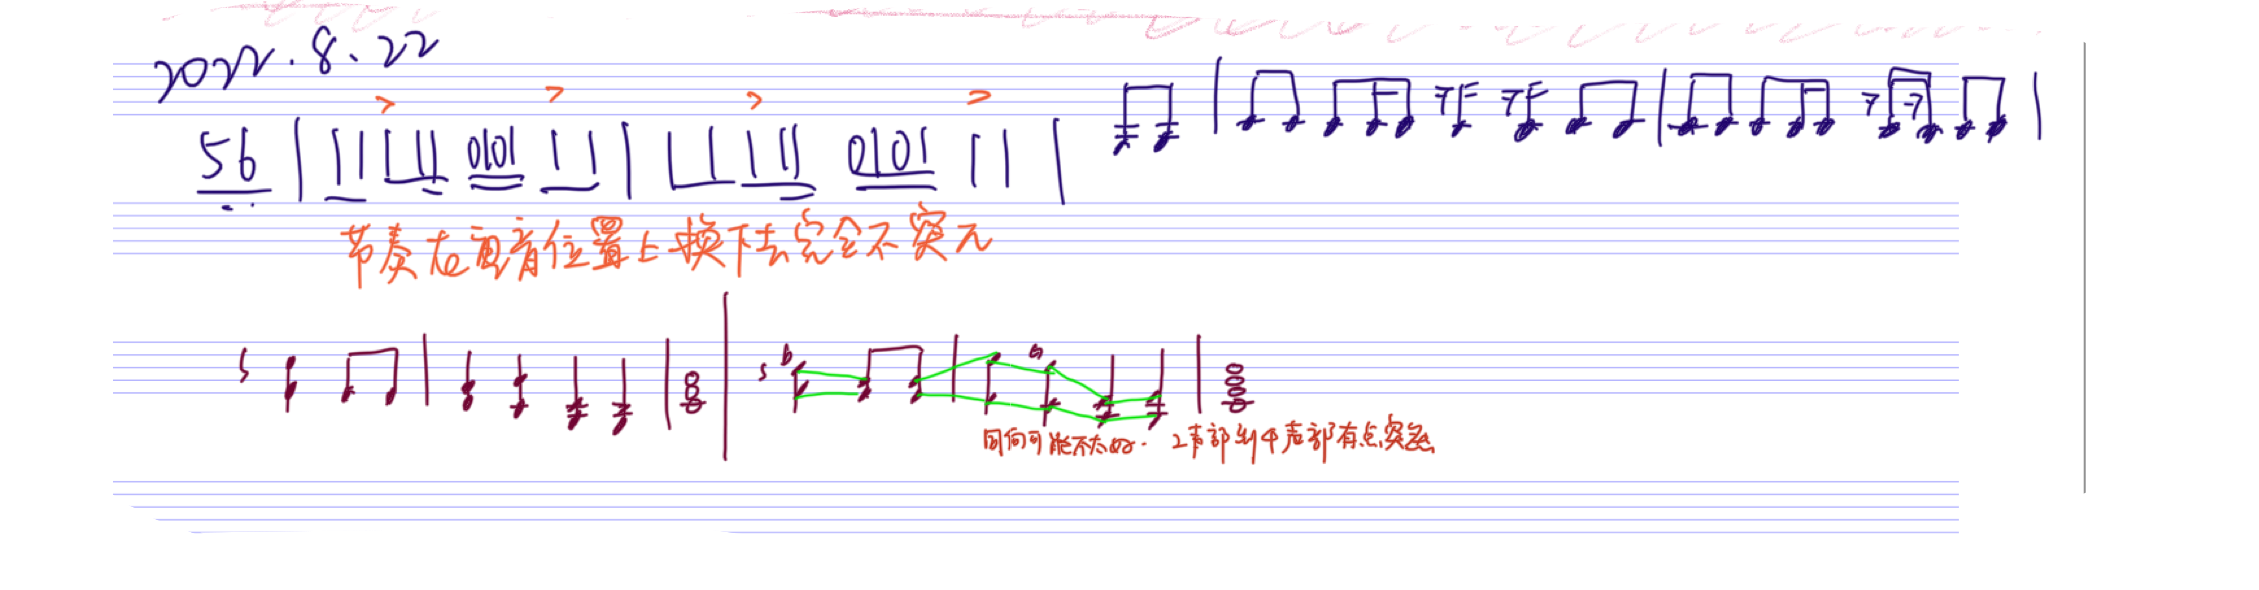 2022.8.22
> > > >
56 | 11 111 0101 11 | 11 111 0101 11 |
节奏在重音位置上换下去完全不突兀
5
5 b
同向可能不太好. 2声部到4声部有点突兀